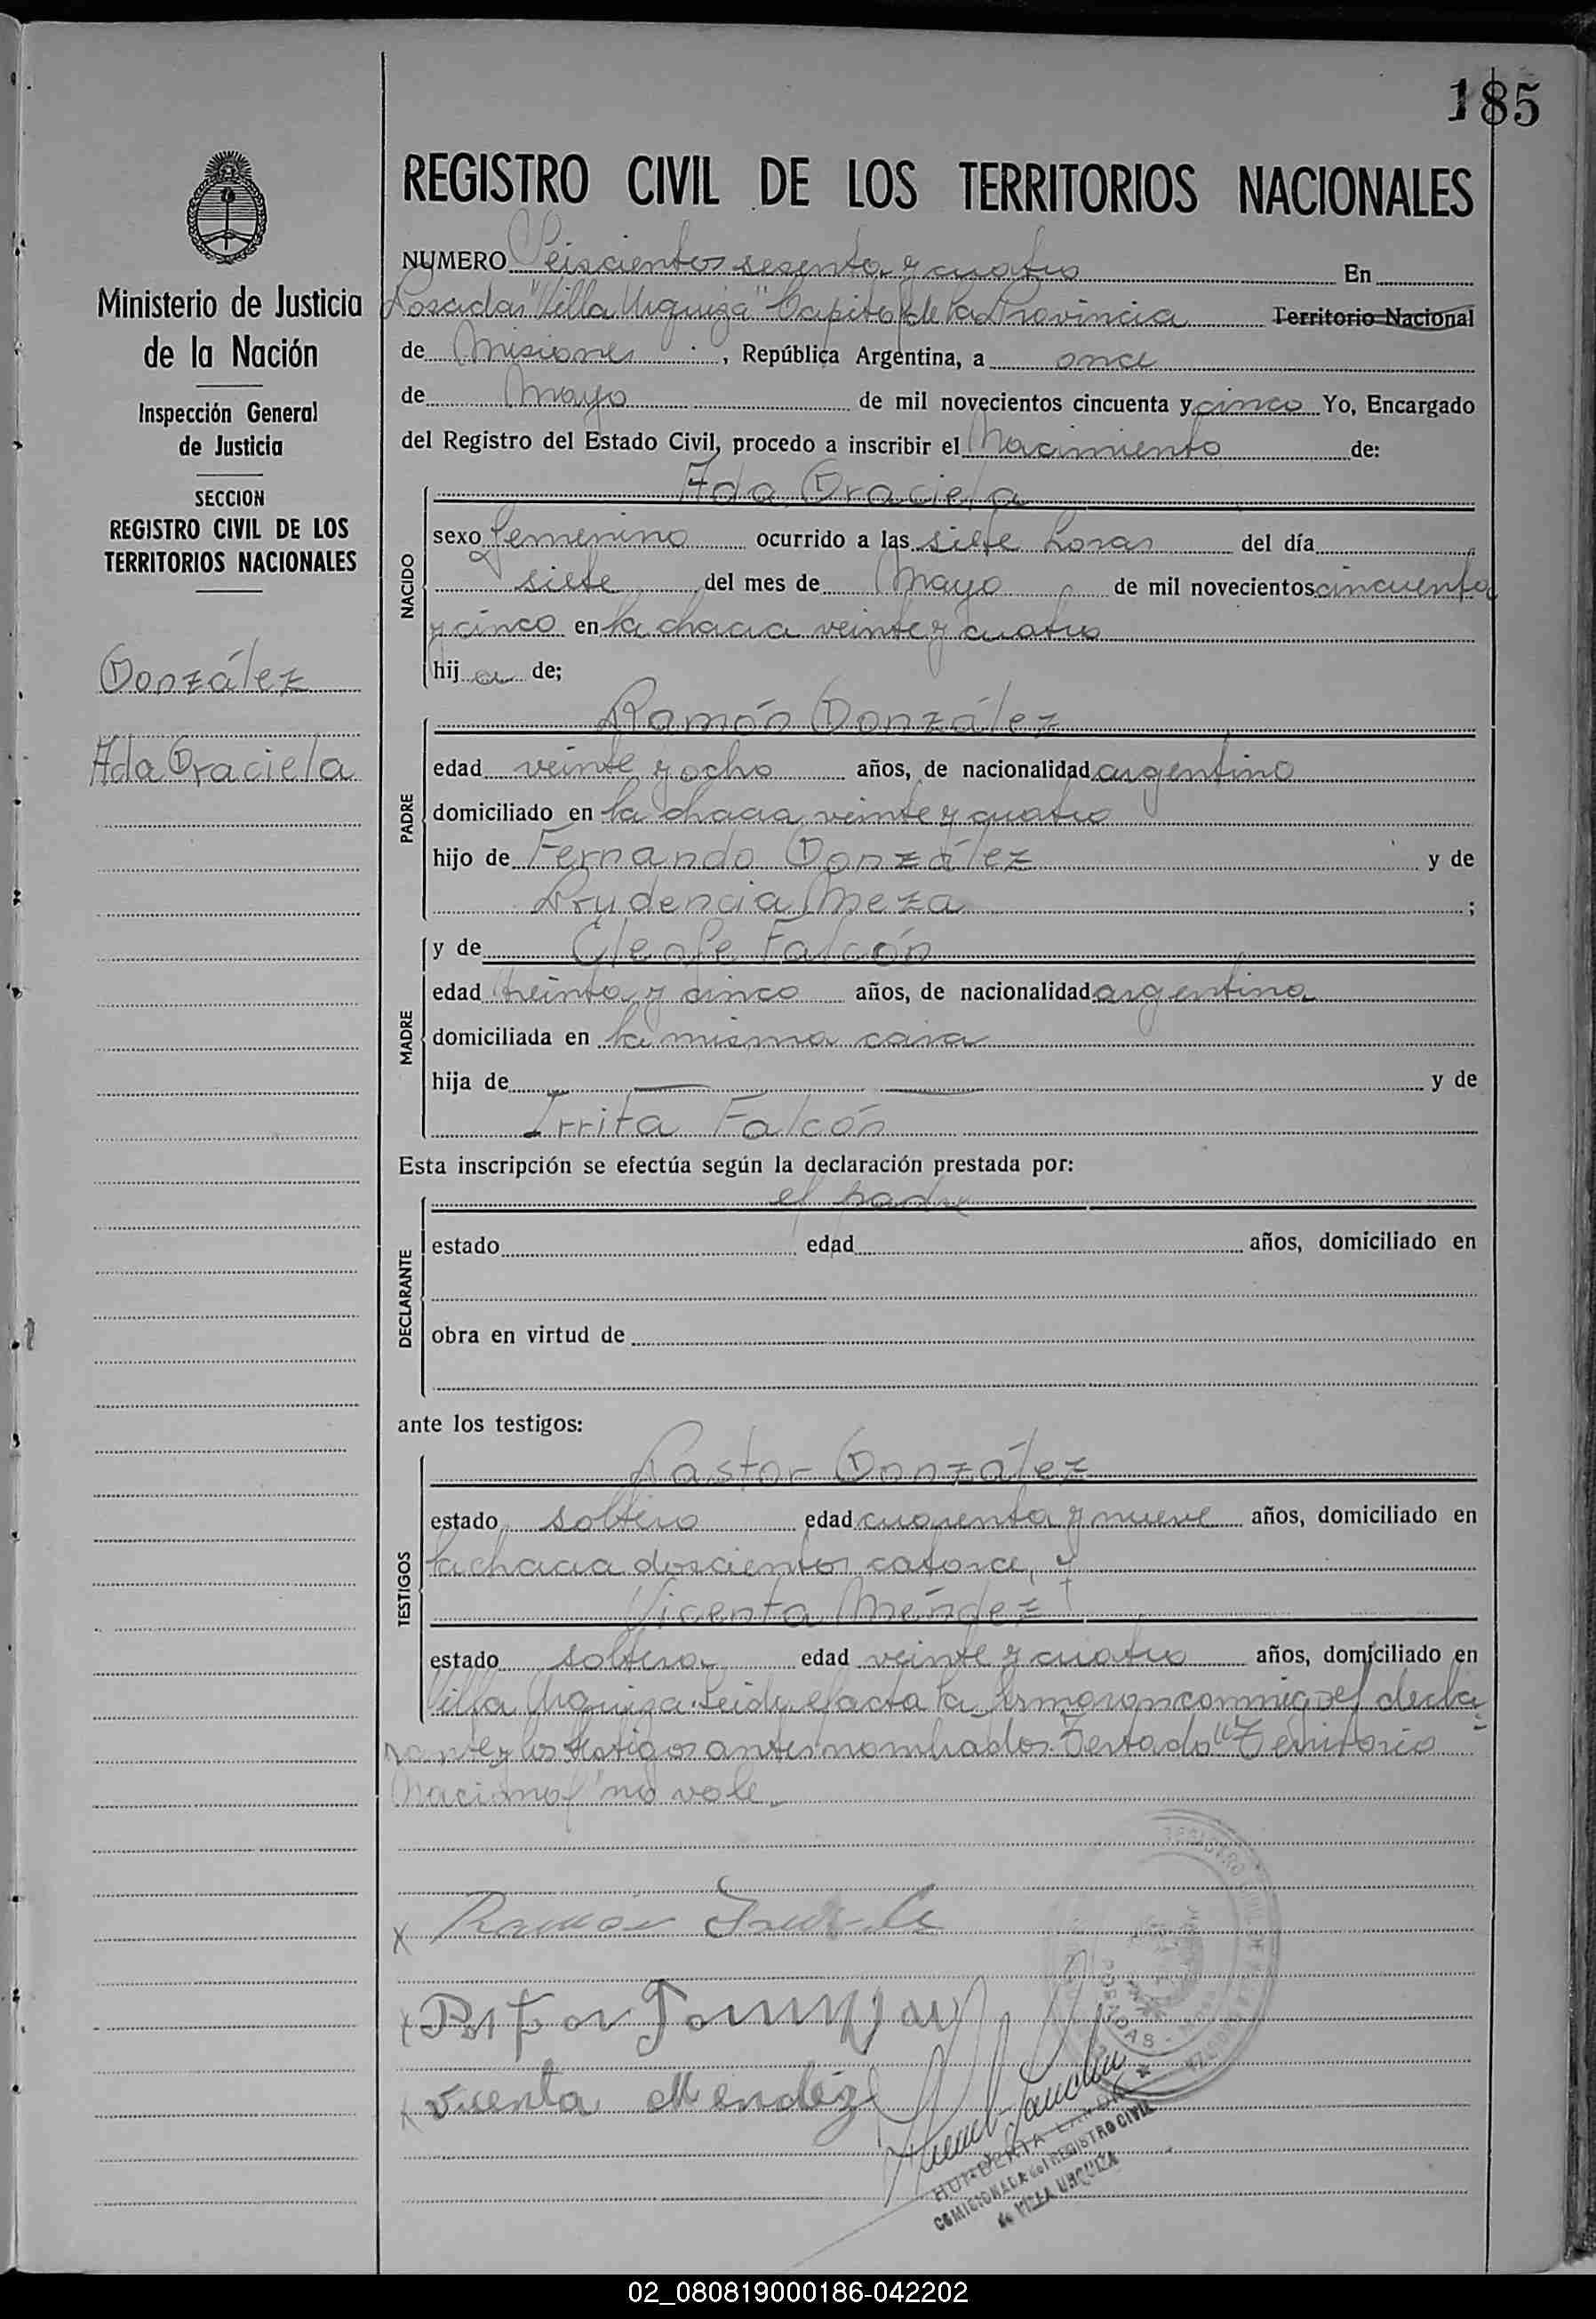 185
REGISTRO CIVIL DE LOS TERRITORIOS NACIONALES
Ministerio de Justicia
de la Nación
Inspección General
de Justicia
SECCION
REGISTRO CIVIL DE LOS
TERRITORIOS NACIONALES
González
Ada Graciela
NUMERO Seiscientos sesenta y cuatro En
Posadas "Villa Urquiza" Capital de la Provincia Territorio Nacional
de Misiones, República Argentina, a once
de Mayo de mil novecientos cincuenta y cinco Yo, Encargado
del Registro del Estado Civil, procedo a inscribir el Nacimiento de:
NACIDO
Ada Graciela
sexo femenino ocurrido a las siete horas del día
siete del mes de Mayo de mil novecientos cincuenta
y cinco en la chacra veinte y cuatro
hija de;
PADRE
Ramón González
edad veinte y ocho años, de nacionalidad argentino
domiciliado en la chacra veinte y cuatro
hijo de Fernando González y de
Prudencia Meza;
MADRE
y de Clenfe Falcón
edad treinta y cinco años, de nacionalidad argentina
domiciliada en la misma casa
hija de — — y de
Irrita Falcón
Esta inscripción se efectúa según la declaración prestada por:
DECLARANTE
el padre
estado edad años, domiciliado en
obra en virtud de
ante los testigos:
TESTIGOS
Pastor González
estado soltero edad cuarenta y nueve años, domiciliado en
la chacra doscientos catorce, y
Vicenta Méndez
estado soltera edad veinte y cuatro años, domiciliado en
Villa Urquiza. Leida el acta la firmaron conmigo el decla
rante y los testigos antes nombrados. Testado "Territorio
Nacional" no vale.
x Ramón
x Pastor
x Vicenta Mendez
REGISTRO CIVIL DE
POSADAS
COMISIONADA del REGISTRO CIVIL
de VILLA URQUIZA
02_080819000186-042202